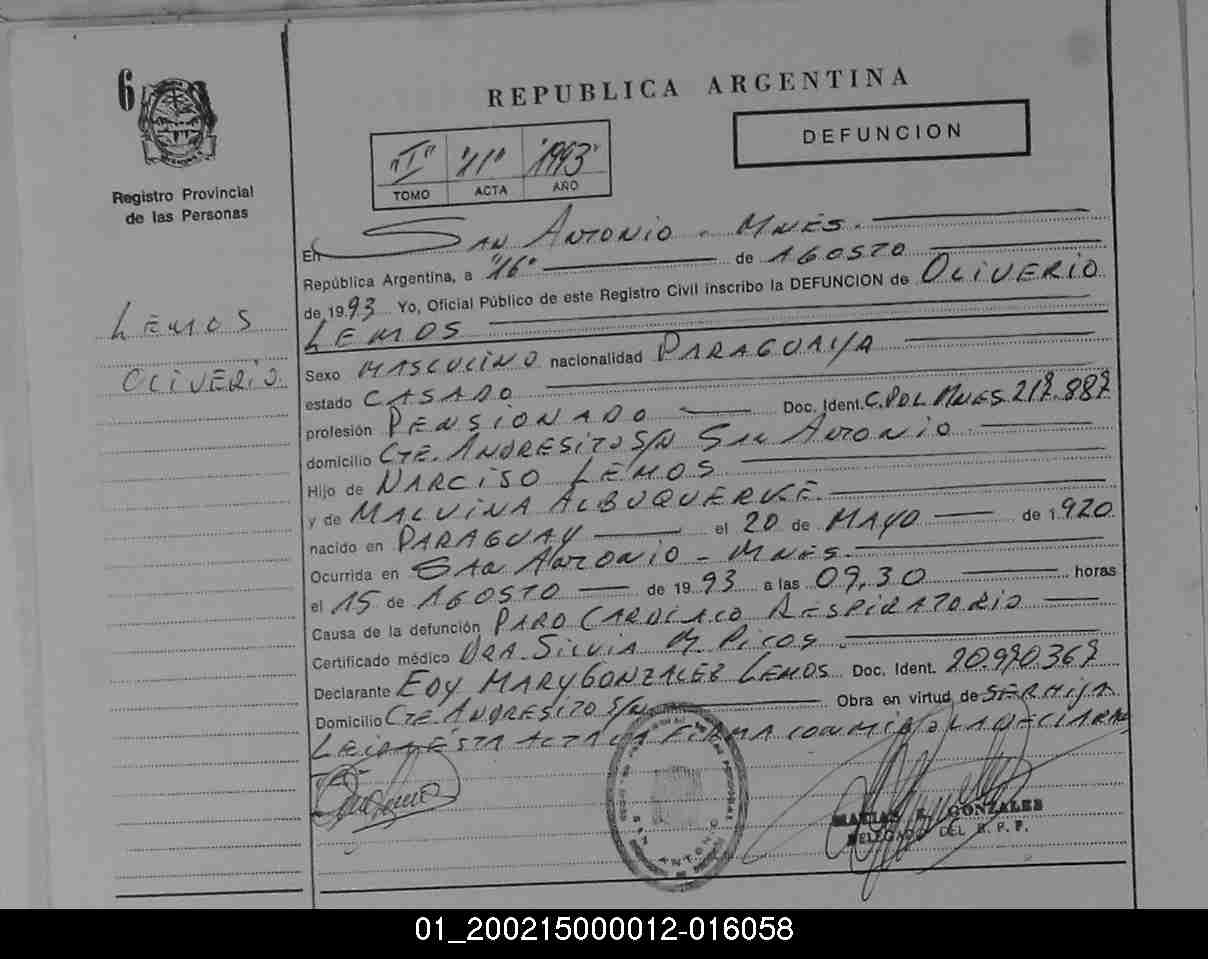 6
REPUBLICA ARGENTINA
DEFUNCION
"I" "11" "1993"
TOMO ACTA AÑO
Registro Provincial
de las Personas
LEMOS
OLIVERIO
En SAN ANTONIO - MNES.
República Argentina, a "16" de AGOSTO
de 1993 Yo, Oficial Público de este Registro Civil inscribo la DEFUNCION de OLIVERIO
LEMOS
Sexo MASCULINO nacionalidad PARAGUAYA
estado CASADO
profesión PENSIONADO Doc. Ident. C. POL MNES.
domicilio CTE. ANDRESITO S/N SAN ANTONIO
Hijo de NARCISO LEMOS
y de MALVINA ALBUQUERUE.
nacido en PARAGUAY el 20 de MAYO de 1.920
Ocurrida en SAN ANTONIO - MNES.
el 15 de AGOSTO de 1993 a las 09,30 horas
Causa de la defunción PARO CARDIACO RESPIRATORIO
Certificado médico DRA. SILVIA M. PICOS.
Declarante EDY MARY GONZALEZ LEMOS Doc. Ident.
Domicilio CTE. ANDRESITO S/N Obra en virtud de SER HIJA
LEIDA ESTA ACTA LA FIRMA CONMIGO LA DECLARA
SAN ANTONIO
MATIAS GONZALES
DELEGADO DEL R. P. P.
01_200215000012-016058